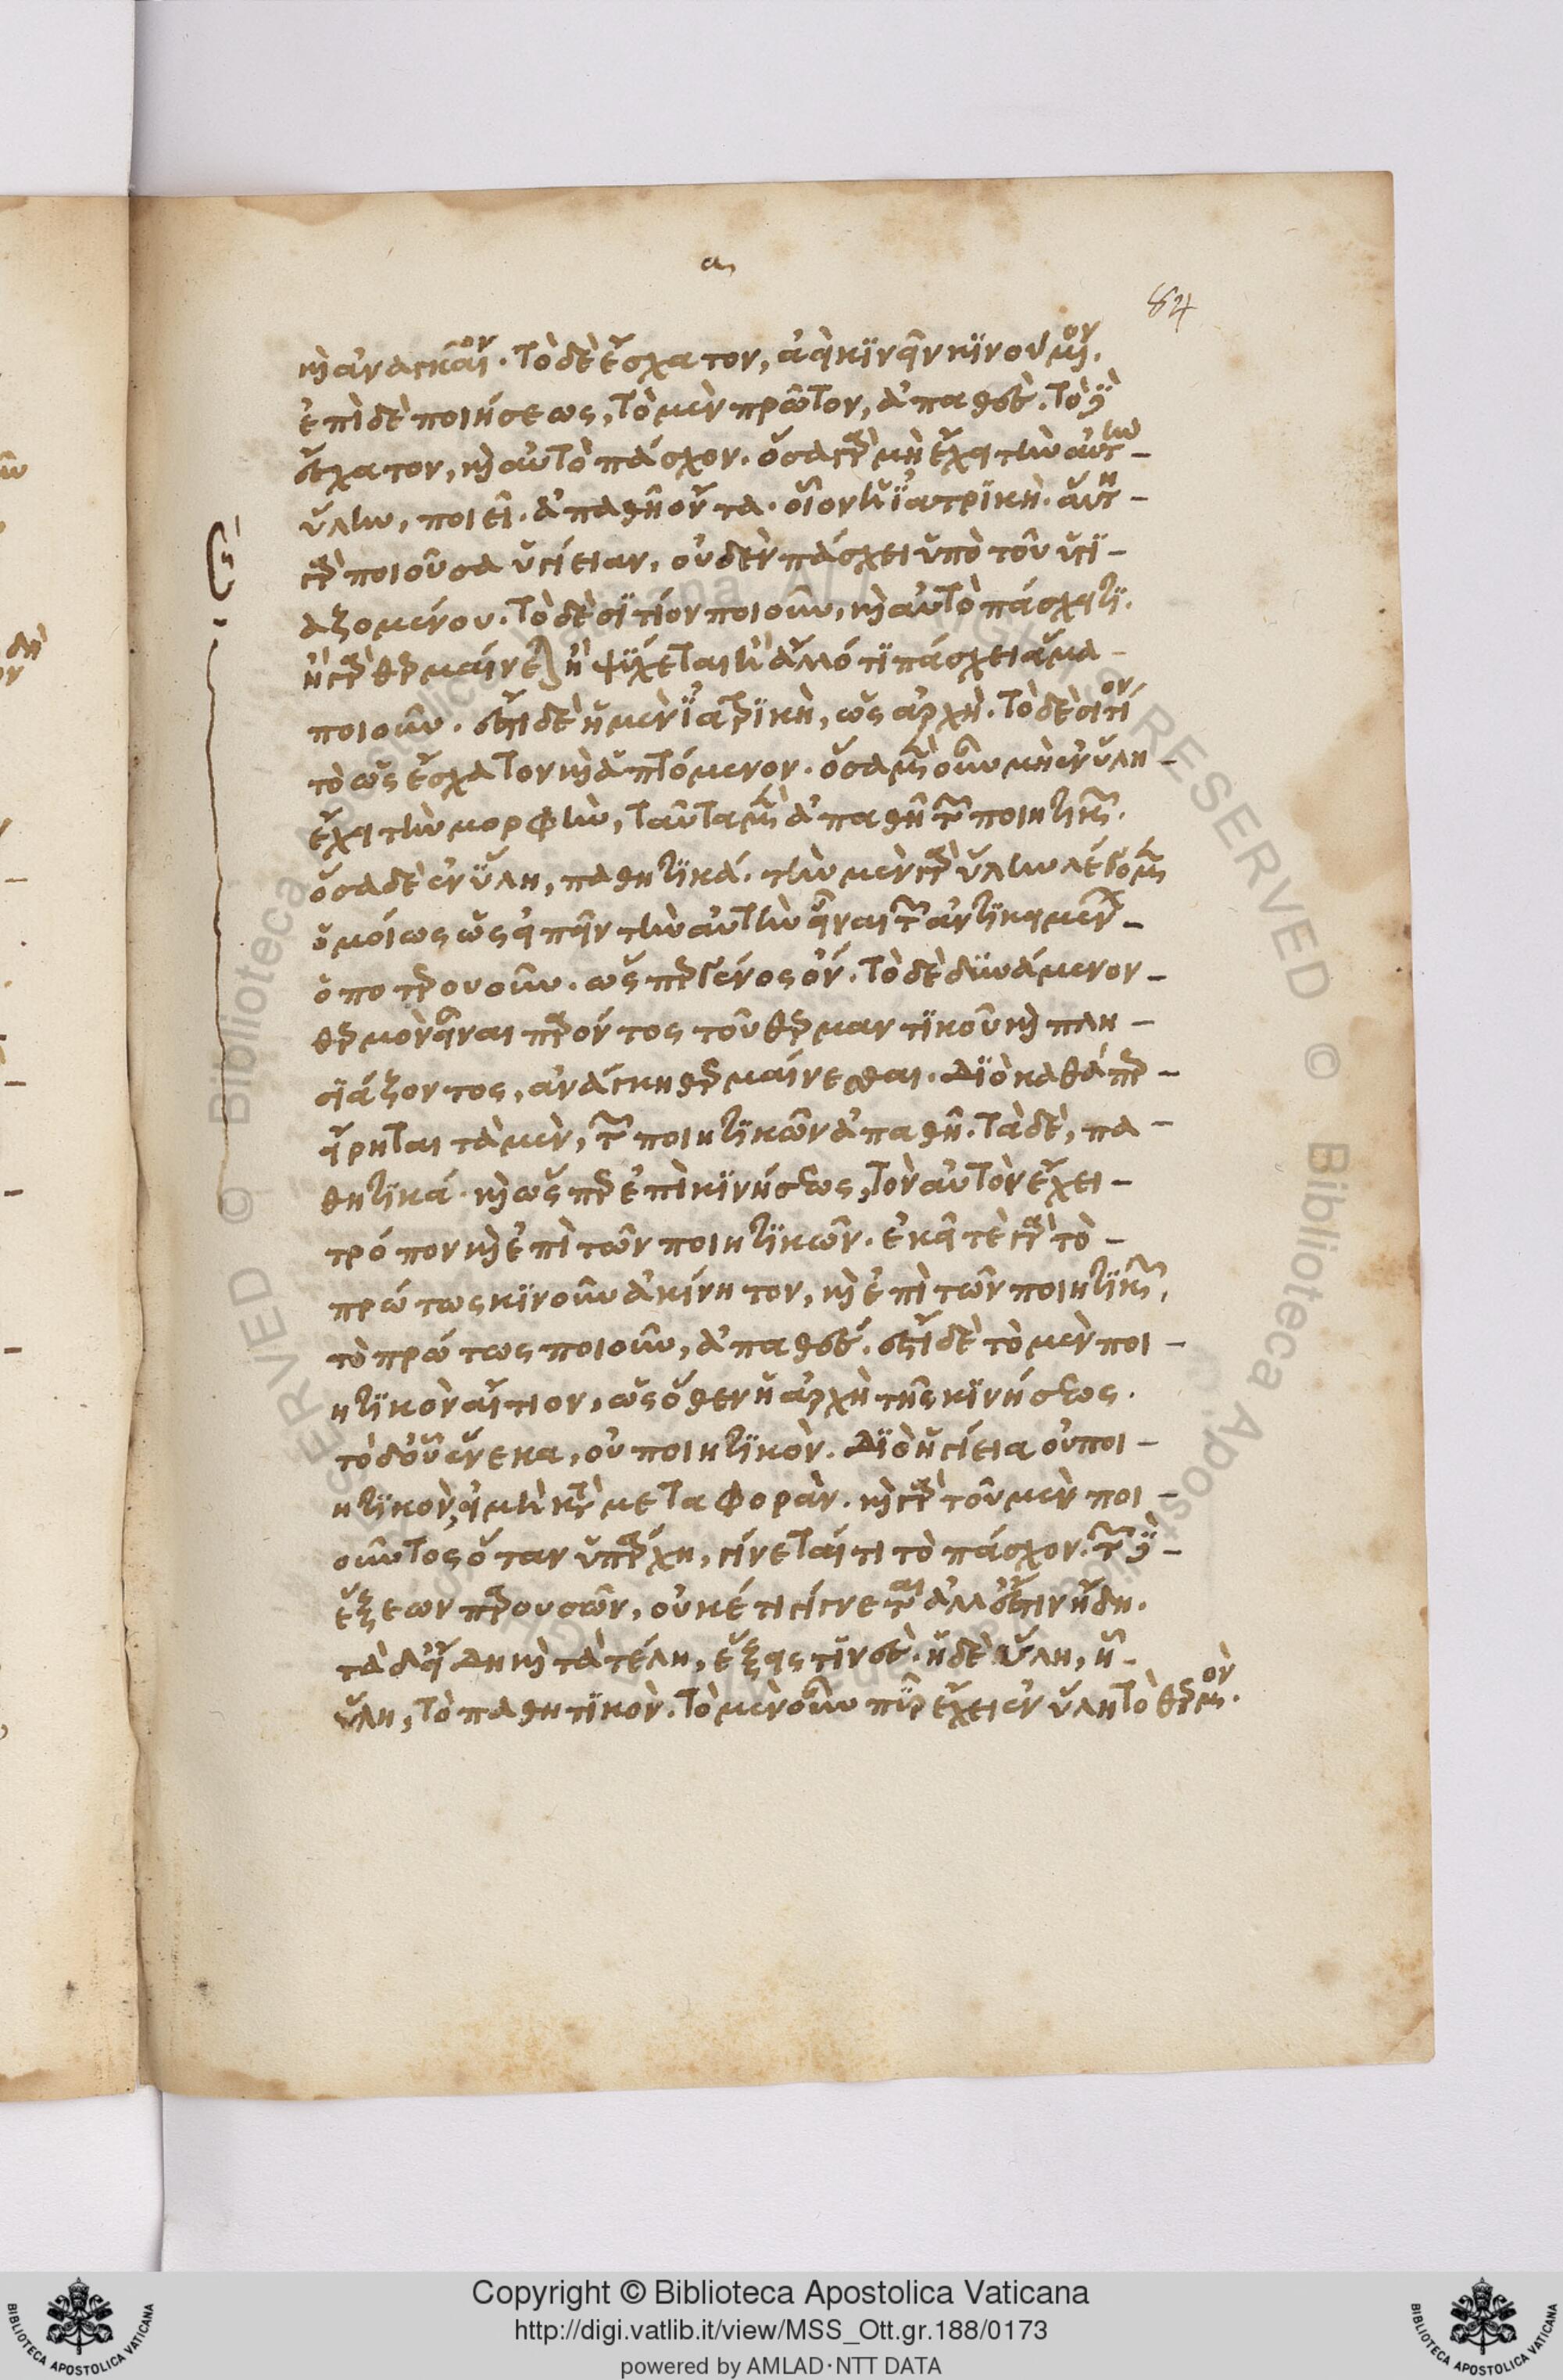 α
84
καὶ ἀναγκαῖον· τὸ δὲ ἔσχατον, ἀεὶ κϊνεῖν κϊνούμενον.
ἐπὶ δὲ ποιήσεως, τὸ μὲν πρῶτον, ἀπαθὲς. τὸ δὲ
ἔσχατον, καὶ αὐτὸ πάσχον. ὅσα γὰρ μὴ ἔχει τὴν αὐτὴν –
ὕλην, ποιεῖ. ἀπαθῆ ὄντα. οἷον ἡ ϊατρϊκὴ. αὕτη –
γὰρ ποιοῦσα ὑγίειαν, οὐδὲν πάσχει ὑπὸ τοῦ ὑγϊ –
αζομένου. τὸ δὲ σϊτίον ποιοῦν, καὶ αὐτὸ πάσχει τϊ.
ἢ γὰρ θερμαίνεται ἢ ψϋχεται ἢ ἄλλό τϊ πάσχει ἅμα –
ποιοῦν. ἔστι δὲ ἡ μὲν ϊατρϊκὴ, ὡς ἀρχὴ. τὸ δὲ σιτίον
τὸ ὡς ἔσχατον καὶ ἁπτόμενον. ὅσα μὲν οὖν μὴ ἐν ὕλη –
ἔχει τὴν μορφὴν, ταῦτα μὲν ἀπαθῆ τῶν ποιητικῶν.
ὅσα δὲ ἐν ὕλη, παθητϊκά. τὴν μὲν γὰρ ὕλην λέγομεν
ὁμοίως ὡς εἰπεῖν τὴν αὐτὴν εἶναι τῶν ἀντϊκειμένων –
ὁποτερουοῦν. ὥσπερ γένος ὄν. τὸ δὲ δϋνάμενον –
θερμὸν εἶναι παρόντος τοῦ θερμαντϊκοῦ καὶ πλη –
σϊάζοντος, ἀνάγκη θερμαίνεσθαι. Δϊὸ καθάπερ –
εἴρηται τὰ μὲν, τῶν ποιητϊκῶν ἀπαθῆ. τὰ δὲ, πα –
θητϊκά. καὶ ὥσπερ ἐπὶ κϊνήσεως, τὸν αὐτὸν ἔχει –
τρόπον καὶ ἐπὶ τῶν ποιητϊκῶν. ἐκεῖ τὲ γὰρ τὸ –
πρώτως κϊνοῦν ἀκίνητον, καὶ ἐπὶ τῶν ποιητϊκῶν,
τὸ πρώτως ποιοῦν, ἀπαθές. ἔστι δὲ τὸ μὲν ποι –
ητϊκὸν αἴτιον, ὡς ὅθεν ἡ ἀρχὴ τῆς κϊνήσεως.
τὸ δ' οὗ ἕνεκα, οὐ ποιητϊκὸν. Δϊὸ ἡ ὑγίεια οὐ ποι –
ητϊκὸν, εἰ μὴ κατὰ μεταφορὰν. καὶ γὰρ τοῦ μὲν ποι –
οῦντος ὅταν ὑπάρχη, γίνεταί τι τὸ πάσχον. τῶν δὲ –
ἕξεων παρουσῶν, οὐκέτι γίγνεται ἀλλ' ἔστιν ἤδη.
τὰ δ' εἴδη καὶ τὰ τέλη, ἕξεις τϊνὲς. ἡ δὲ ὕλη, ἧ –
ὕλη, τὸ παθητϊκὸν. τὸ μὲν οὖν πῦρ ἔχει ἐν ὕλη τὸ θερμὸν.
Copyright © Biblioteca Apostolica Vaticana
http://digi.vatlib.it/view/MSS_Ott.gr.188/0173
powered by AMLAD·NTT DATA